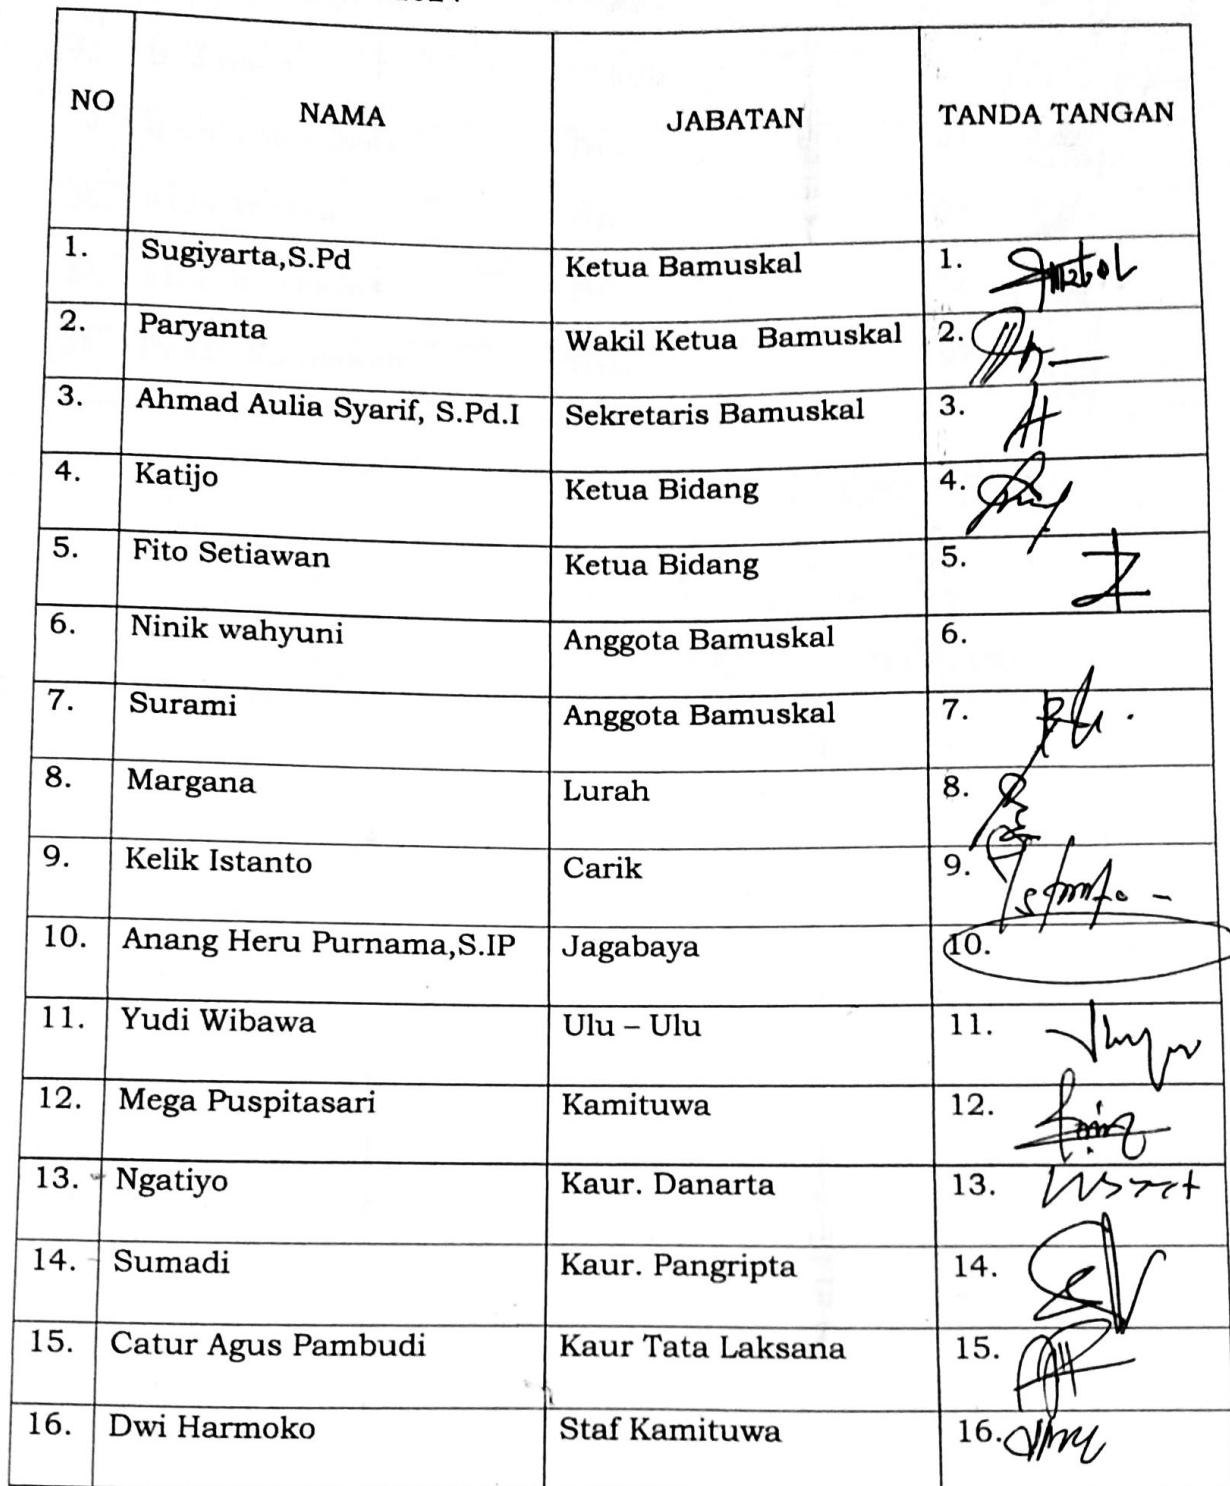 NO NAMA JABATAN TANDA TANGAN
1. Sugiyarta,S.Pd Ketua Bamuskal 1.
2. Paryanta Wakil Ketua Bamuskal 2.
3. Ahmad Aulia Syarif, S.Pd.I Sekretaris Bamuskal 3.
4. Katijo Ketua Bidang 4.
5. Fito Setiawan Ketua Bidang 5.
6. Ninik wahyuni Anggota Bamuskal 6.
7. Surami Anggota Bamuskal 7.
8. Margana Lurah 8.
9. Kelik Istanto Carik 9.
10. Anang Heru Purnama,S.IP Jagabaya 10.
11. Yudi Wibawa Ulu – Ulu 11.
12. Mega Puspitasari Kamituwa 12.
13. Ngatiyo Kaur. Danarta 13.
14. Sumadi Kaur. Pangripta 14.
15. Catur Agus Pambudi Kaur Tata Laksana 15.
16. Dwi Harmoko Staf Kamituwa 16.